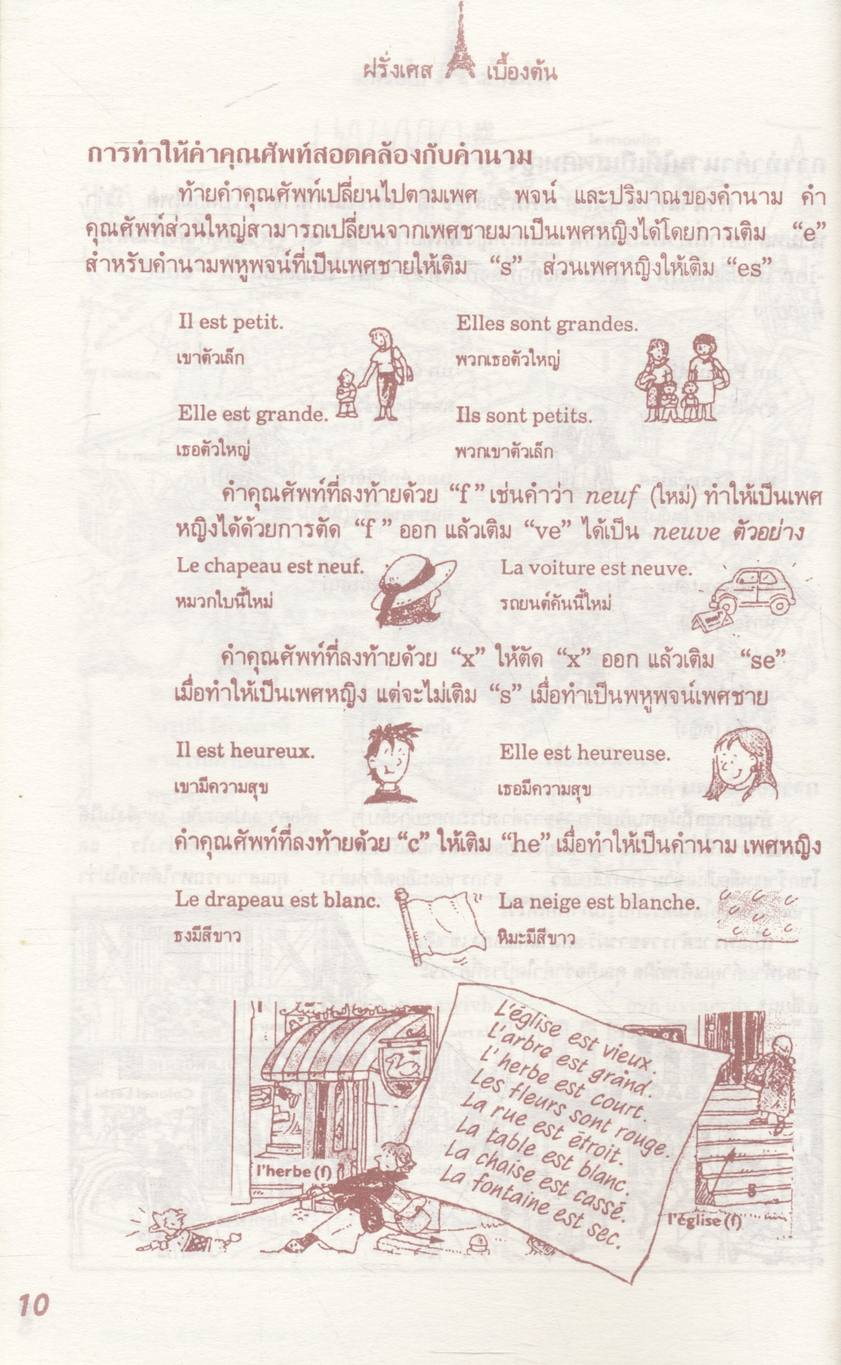 ฝรั่งเศส เบื้องต้น
การทำให้คำคุณศัพท์สอดคล้องกับคำนาม
ท้ายคำคุณศัพท์เปลี่ยนไปตามเพศ พจน์ และปริมาณของคำนาม คำ
คุณศัพท์ส่วนใหญ่สามารถเปลี่ยนจากเพศชายมาเป็นเพศหญิงได้โดยการเติม “e”
สำหรับคำนามพหูพจน์ที่เป็นเพศชายให้เติม “s” ส่วนเพศหญิงให้เติม “es”
Il est petit. Elles sont grandes.
เขาตัวเล็ก พวกเธอตัวใหญ่
Elle est grande. Ils sont petits.
เธอตัวใหญ่ พวกเขาตัวเล็ก
คำคุณศัพท์ที่ลงท้ายด้วย “f” เช่นคำว่า neuf (ใหม่) ทำให้เป็นเพศ
หญิงได้ด้วยการตัด “f” ออก แล้วเติม “ve” ได้เป็น neuve ตัวอย่าง
Le chapeau est neuf. La voiture est neuve.
หมวกใบนี้ใหม่ รถยนต์คันนี้ใหม่
คำคุณศัพท์ที่ลงท้ายด้วย “x” ให้ตัด “x” ออก แล้วเติม “se”
เมื่อทำให้เป็นเพศหญิง แต่จะไม่เติม “s” เมื่อทำเป็นพหูพจน์เพศชาย
Il est heureux. Elle est heureuse.
เขามีความสุข เธอมีความสุข
คำคุณศัพท์ที่ลงท้ายด้วย “c” ให้เติม “he” เมื่อทำให้เป็นคำนาม เพศหญิง
Le drapeau est blanc. La neige est blanche.
ธงมีสีขาว หิมะมีสีขาว
L'église est vieux.
L'arbre est grand.
L'herbe est court.
Les fleurs sont rouge.
La rue est étroit.
La table est blanc.
La chaise est cassé.
La fontaine est sec.
l'herbe (f)
l'église (f)
10